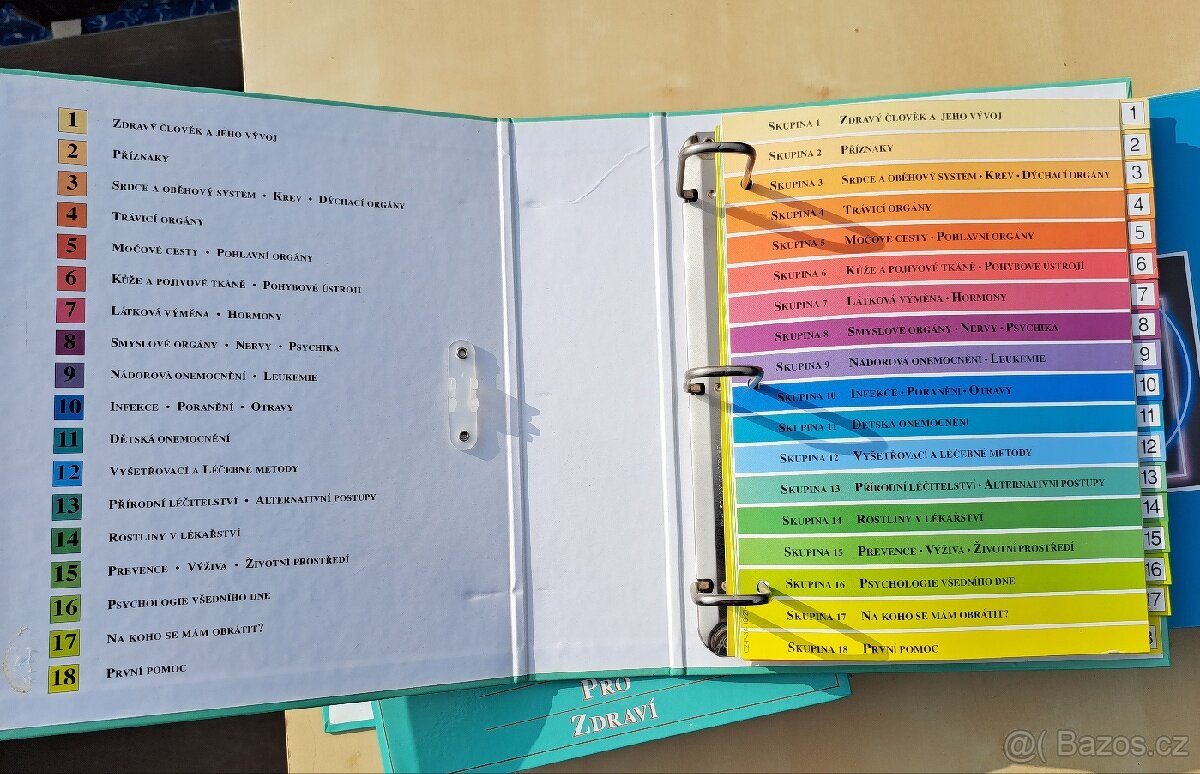 1 Zdravý člověk a jeho vývoj
2 Příznaky
3 Srdce a oběhový systém • Krev • Dýchací orgány
4 Trávicí orgány
5 Močové cesty • Pohlavní orgány
6 Kůže a pojivové tkáně • Pohybové ústrojí
7 Látková výměna • Hormony
8 Smyslové orgány • Nervy • Psychika
9 Nádorová onemocnění • Leukemie
10 Infekce • Poranění • Otravy
11 Dětská onemocnění
12 Vyšetřovací a Léčebné metody
13 Přírodní léčitelství • Alternativní postupy
14 Rostliny v lékařství
15 Prevence • Výživa • Životní prostředí
16 Psychologie všedního dne
17 Na koho se mám obrátit?
18 První pomoc
Skupina 1 Zdravý člověk a jeho vývoj 1
Skupina 2 Příznaky 2
Skupina 3 Srdce a oběhový systém · Krev · Dýchací orgány 3
Skupina 4 Trávicí orgány 4
Skupina 5 Močové cesty · Pohlavní orgány 5
Skupina 6 Kůže a pojivové tkáně · Pohybové ústrojí 6
Skupina 7 Látková výměna · Hormony 7
Skupina 8 Smyslové orgány · Nervy · Psychika 8
Skupina 9 Nádorová onemocnění · Leukemie 9
Skupina 10 Infekce · Poranění · Otravy 10
Skupina 11 Dětská onemocnění 11
Skupina 12 Vyšetřovací a léčebné metody 12
Skupina 13 Přírodní léčitelství · Alternativní postupy 13
Skupina 14 Rostliny v lékařství 14
Skupina 15 Prevence · Výživa · Životní prostředí 15
Skupina 16 Psychologie všedního dne 16
Skupina 17 Na koho se mám obrátit? 17
Skupina 18 První pomoc
Pro
Zdraví
@( Bazos.cz